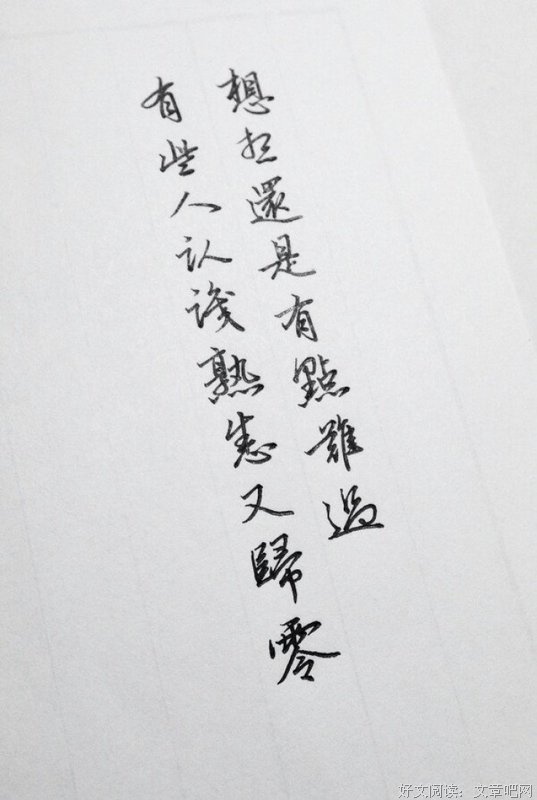 想起還是有點難過
有些人认識熟悉又歸零
好文阅读：文章吧网